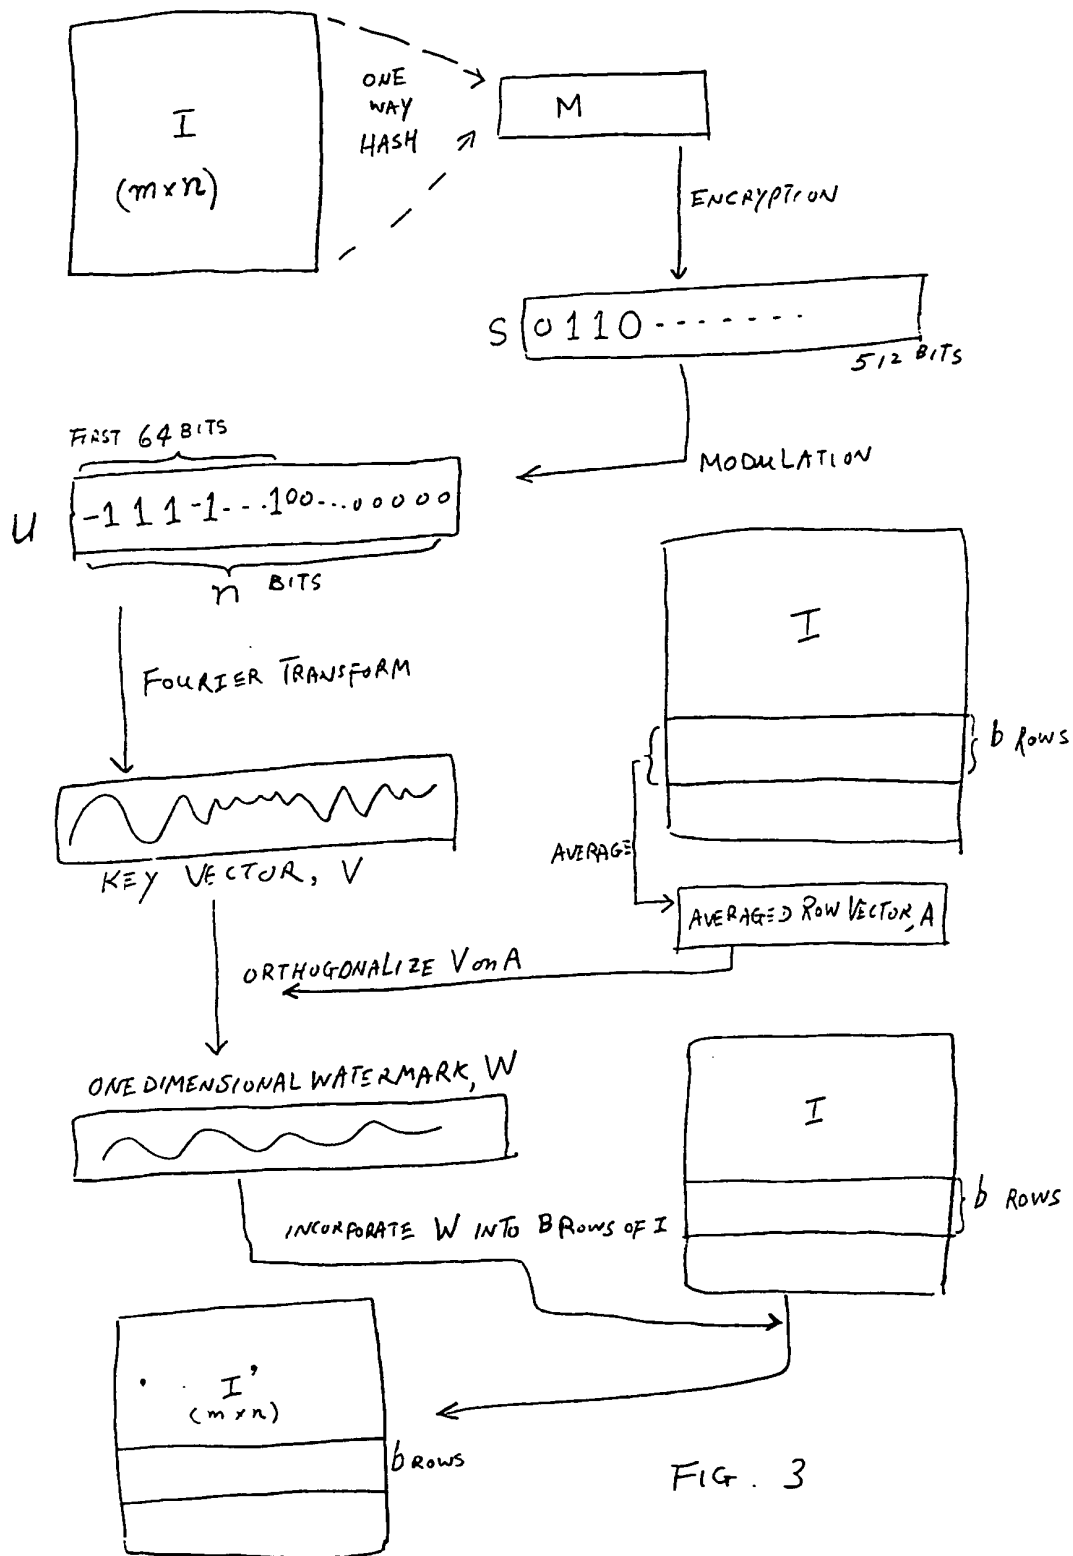 I
(m×n)
ONE
WAY
HASH
M
ENCRYPTION
S 0110--------
512 BITS
MODULATION
FIRST 64 BITS
U -1 1 1 -1---.100--..00000
n BITS
FOURIER TRANSFORM
I
b ROWS
AVERAGE
KEY VECTOR, V
AVERAGED ROW VECTOR, A
ORTHOGONALIZE V on A
ONE DIMENSIONAL WATERMARK, W
I
b ROWS
INCORPORATE W INTO B ROWS OF I
I'
(m×n)
b ROWS
FIG. 3